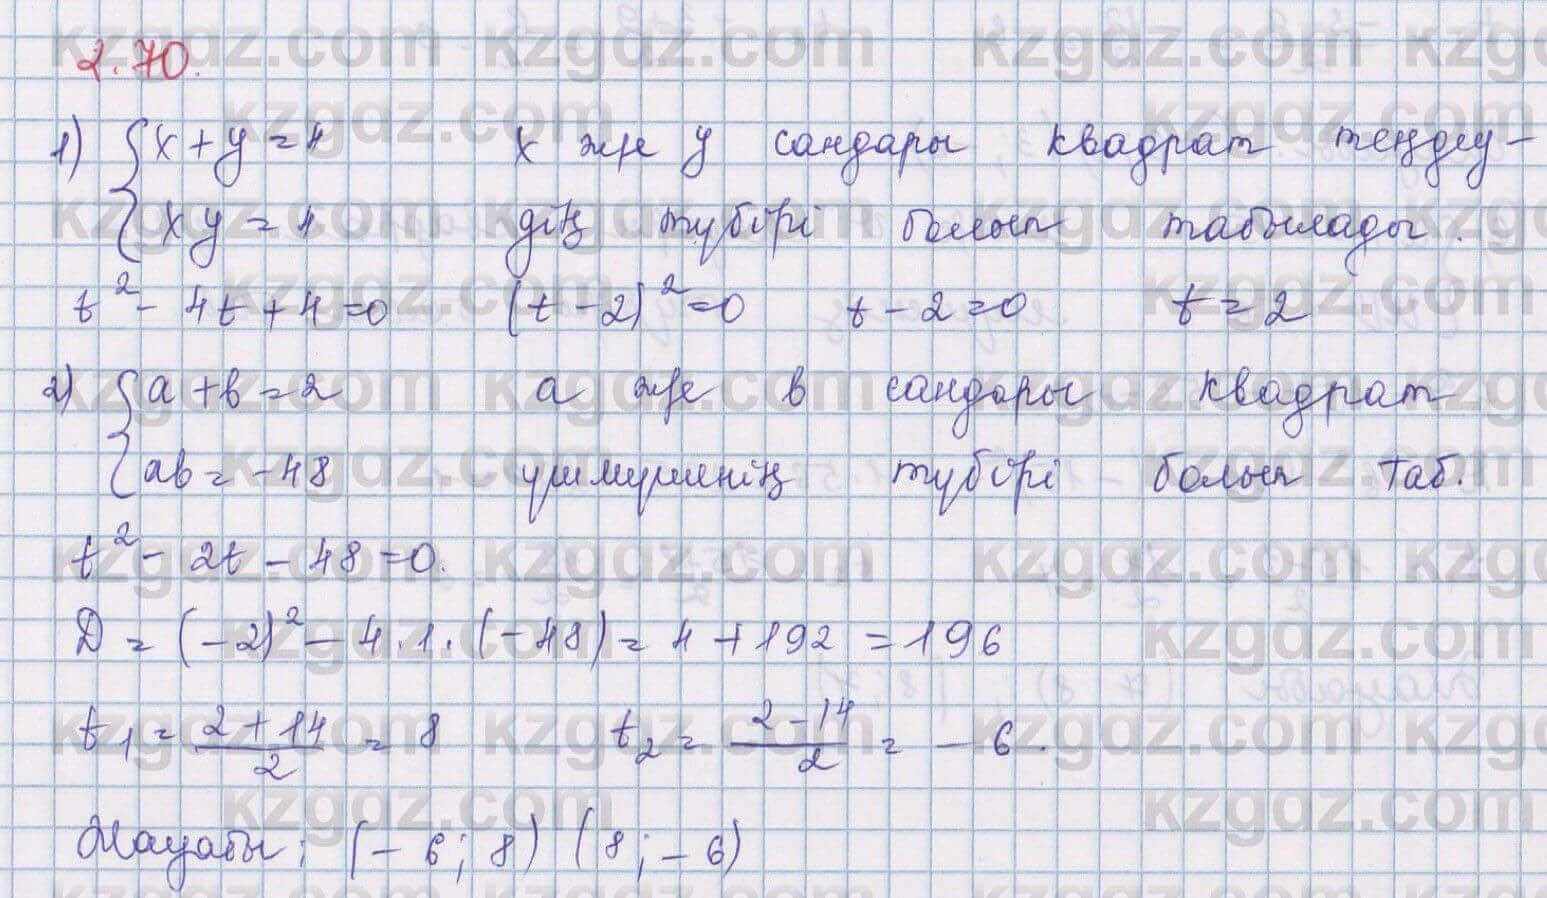 2.70.
1) { x + y = 4 х және у сандары квадрат теңдеу-
xy = 4 дің түбірі болып табылады.
t² - 4t + 4 = 0 (t - 2)² = 0 t - 2 = 0 t = 2
2) { a + b = 2 а және в сандары квадрат
ab = -48 үшмүшенің түбірі болып таб.
t² - 2t - 48 = 0.
D = (-2)² - 4 · 1 · (-48) = 4 + 192 = 196
t₁ = (2 + 14)/2 = 8 t₂ = (2 - 14)/2 = -6.
Жауабы: (-6; 8) (8; -6)
kzgdz.com